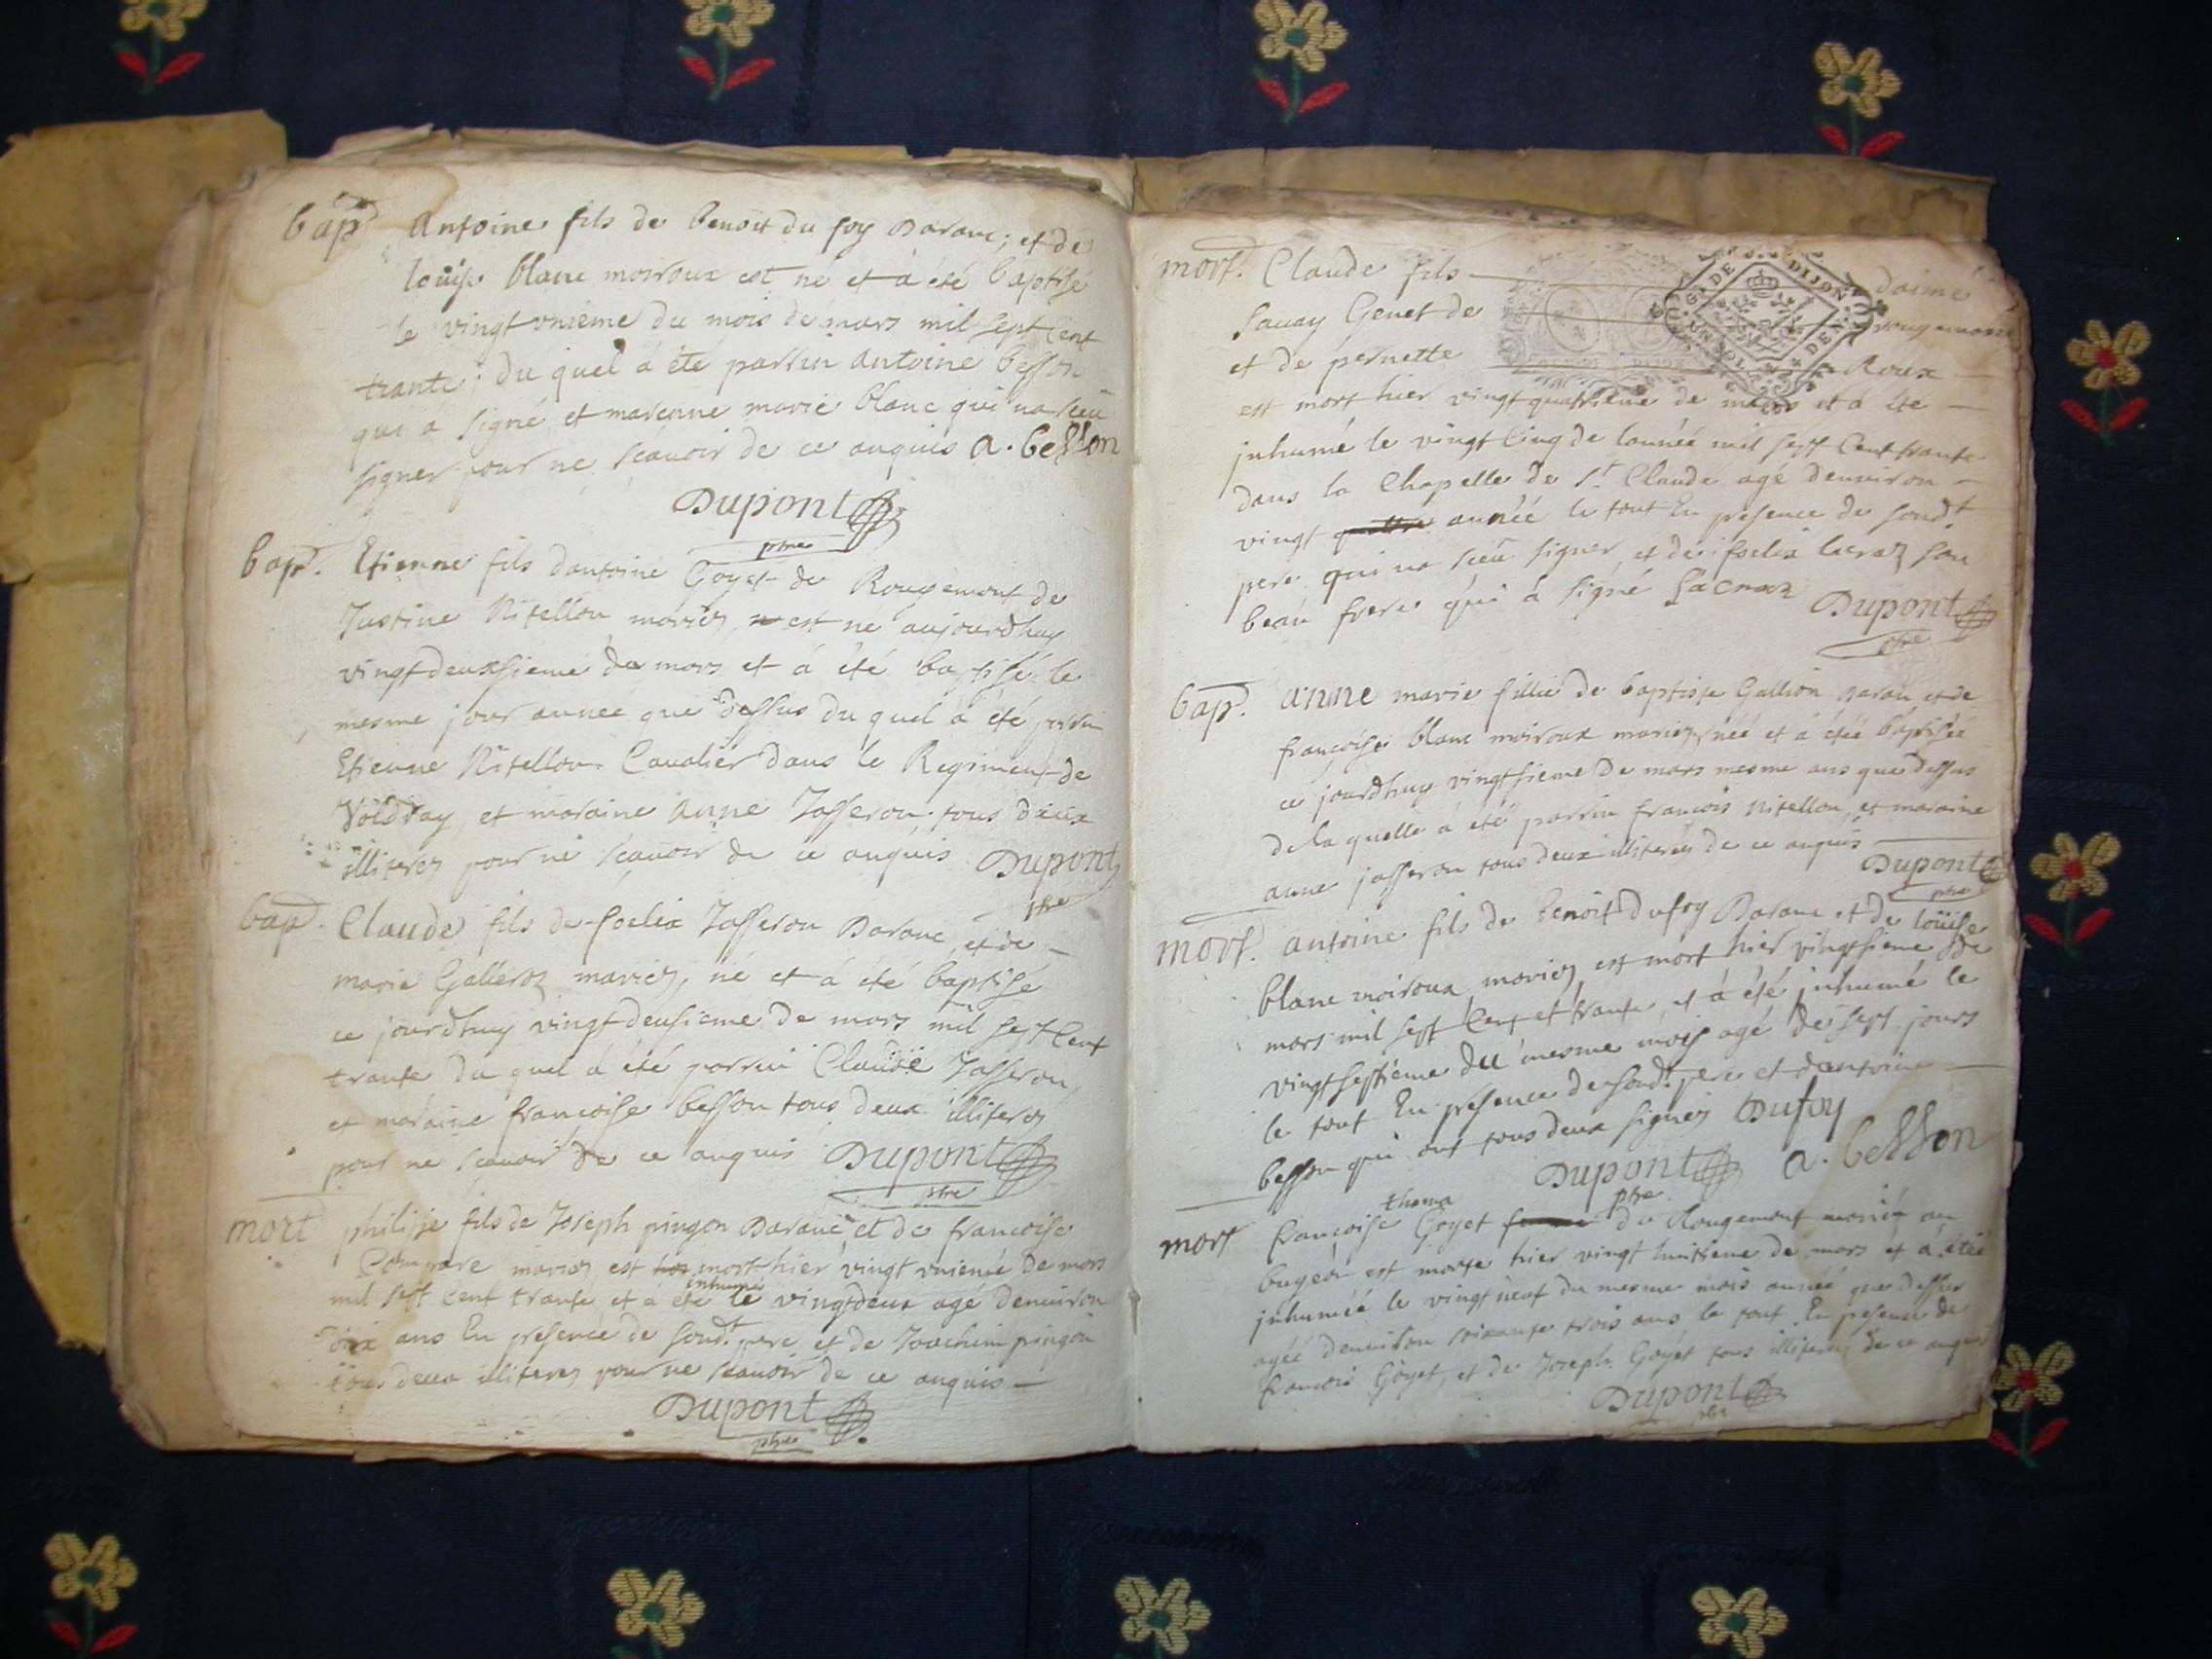 bap Antoine fils de benoit du foy Daranc; et de
loüise blanc moiroux est né et à été baptisé
le vingt unieme du mois de mars mil sept Cent
trante; du quel à été parrin antoine besson
qui a signé et marenne marie blanc qui na sceu
signer pour ne scavoir de ce anquis a. besson
Dupont
ptre
bap. Etienne fils dantoine Goyet de Rougemont de
Justine Nitellon mariez est ne aujourdhuy
vingt deuxsieme de mars et à été baptisé le
mesme jour annee que dessus du quel a été parrin
Etienne Nitellon Cavalier dans le Regiment de
Voldray et maraine anne Jasseron tous deux
illiterez pour ne scavoir de ce anquis Dupont
ptre
bap. Claude fils de foelix Jasseron Daranc, et de
marie Galleroz mariez, né et à été baptisé
ce jourdhuy vingt deusieme de mars mil sept Cent
trante du quel à été parrin Claude Jasseron
et maraine francoise besson tous deux illiterez
pour ne scavoir de ce anquis Dupont
ptre
mort philipe fils de Joseph pingon Daranc et de francoise
Compare mariez est mort hier vingt unieme de mars
mil sept Cent trante et a été inhumé le vingtdeux agé denviron
ans En presence de sond.t pere et de Joachim pingon
tous deux illiterez pour ne scavoir de ce anquis
Dupont
ptre
mort. Claude fils daimé
Savay Genet de rougemont
et de pernette Roux
est mort hier vingt quatrieme de mars et à été
inhumé le vingt Cinq de lannéé mil sept Cent trante
dans la Chapelle de S.t Claude agé denviron
vingt année le tout En presence de sond.t
pere qui na sceu signer et de foelix lacraz son
beau frere qui à signé Lacraz Dupont
ptre
GN.DE DIJON
bap. anne marie fillie de baptiste Gallion Daranc et de
françoise blanc moiroux mariez, néé et à étéé baptiséé
ce jourdhuy vingtsieme de mars mesme ans que dessus
de la quelle a été parrin francois Nitellon, et maraine
anne jasseron tous deux illiterez de ce anquis
Dupont
ptre
mort. antoine fils de benoit dufoy Daranc et de loüise
blanc moiroux mariez est mort hier vingtsieme de
mars mil sept Cent et trante, et à été inhumé le
vingt septieme du mesme mois agé de sept jours
le tout En presence de sond.t pere et dantoine
besson qui ont tous deux signez Dufoy
Dupont a. besson
ptre
thoma
mort francoise Goyet de Rougemont mariéé au
bugeon est morte hier vingt huitieme de mars et à étéé
inhuméé le vingt neuf du mesme mois année que dessus
agéé denviron soixante trois ans le tout En presence de
francois Goyet, et de Joseph Goyet tous illiterez de ce anquis
Dupont
ptre